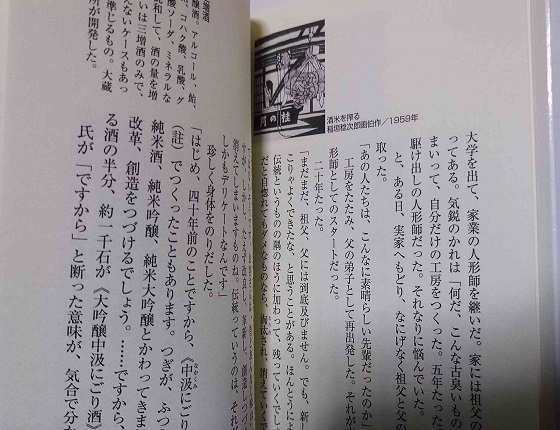 大学を出て、家業の人形師を継いだ。家には祖父の
ってある。気鋭のかれは「何だ、こんな古臭いもの
まいって、自分だけの工房をつくった。五年たった
駆け出しの人形師だった。それなりに悩んでいた。
と、ある日、実家へもどり、なにげなく祖父と父の
取った。
「あの人たちは、こんなに素晴らしい先輩だったのか」
工房をたたみ、父の弟子として再出発した。それが
形師としてのスタートだった。
二十年たった。
「まだまだ、祖父、父には到底及びません。でも、新し
こりゃよくできたな、と思うことがある。ほんとうによ
伝統というものの隅のほうに加わって、残っていくでし
だと自惚れてもダメなものなら、淘汰され、消えていくで
酒米を搾る
稲垣稔次郎画伯作/1959年
月の桂
消えてしまいますものね。伝統っていうのは、それ
しかもデリケートなんです」
珍しく身体をのりだした。
「はじめ、四十年前のことですから、《中汲にごり
(註)でつくったこともあります。つぎが、ふつ
純米酒、純米吟醸、純米大吟醸とかわってきま
改革、創造をつづけるでしょう。……ですから、
る酒の半分、約一千石が《大吟醸中汲にごり酒》
氏が「ですから」と断った意味が、気合で分か
増酒
醸酒。アルコール、飴、
、コハク酸、乳酸、グ
酸ソーダ、ミネラルな
和して、酒の量を増
いは三増酒のみで、
えないケースもあっ
準じるもの。大蔵
所が開発した。